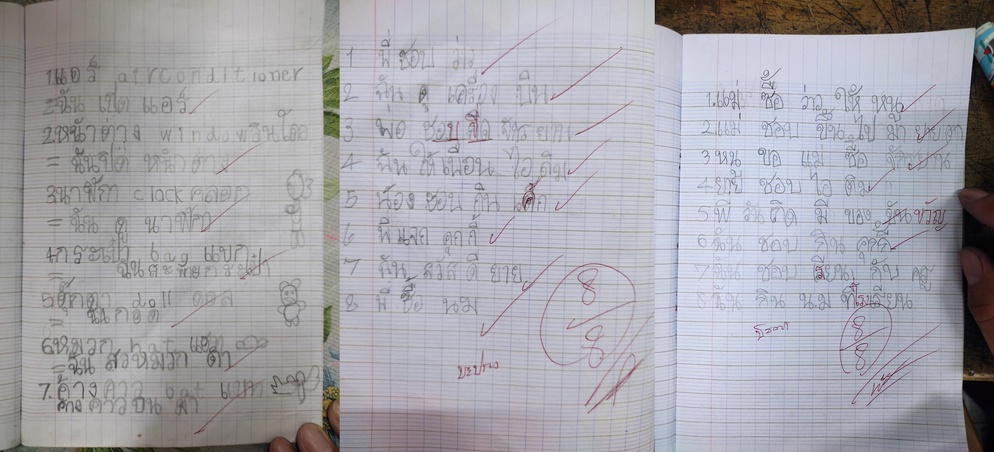 1.แอร์ airconditioner
= ฉัน เปิด แอร์
2.หน้าต่าง window วินโดล
= ฉันปิด หน้าต่าง
3.นาฬิกา clock คลอก
= ฉัน ดู นาฬิกา
4.กระเป๋า bag แบก
= ฉันสะพายกระเป๋า
5.ตุ๊กตา doll ดอล
= ฉันกอด
6.หมวก hat แฮท
= ฉัน สวมหมวก ดำ
7.ค้างคาว bat แบท
ค้างคาวบิน มา
1 พี่ ชอบ ว่าว
2 ฉัน ดู เครื่อง บิน
3 พ่อ ชอบ ขี่ จักรยาน
4 ฉัน ให้ เพื่อน ไอ ติม
5 น้อง ชอบ กิน เค้ก
6 พี่ แจก คุกกี้
7 ฉัน สวัส ดี ยาย
8 พี่ ซื้อ นม
8
8
1.แม่ ซื้อ ว่าว ให้ หนู
2.แม่ ชอบ ขึ้น ไป มา ยายตา
3 หนู ขอ แม่ ซื้อ จักรยาน
4.ยายี ชอบ ไอ ติม
5 พี่ วันเกิด มี ของ ขันขวัญ
6 ฉัน ชอบ กิน คุกกี้
7 ฉัน ชอบ เรียน กับ ครู
8 ฉัน กิน น.ม ที่โรงเรียน
8
8